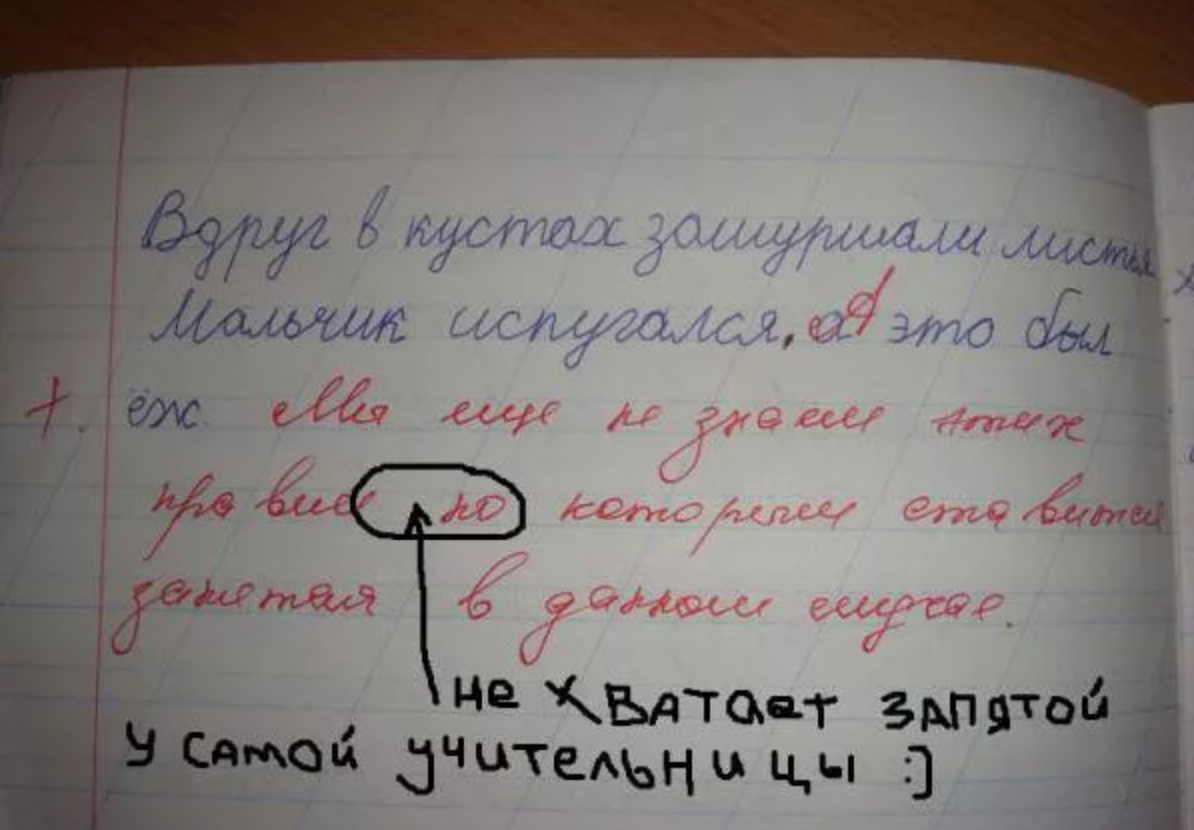 Вдруг в кустах зашуршали листья
Мальчик испугался, а это был
ёж. Мы еще не знаем этих
правил по которым ставится
запятая в данном случае.
не хватает запятой
у самой учительницы :)